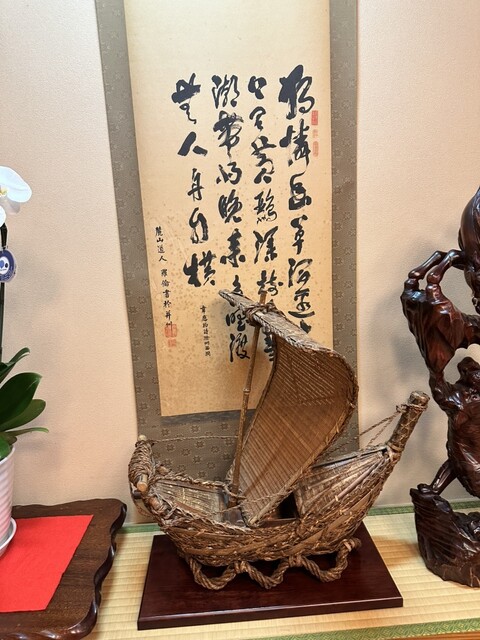 獨憐幽草澗邊
上有黃鸝深樹
潮帶雨晚來急野渡
無人舟自横
韋應物詩滁州西澗
麓山道人 羅倫書於并州